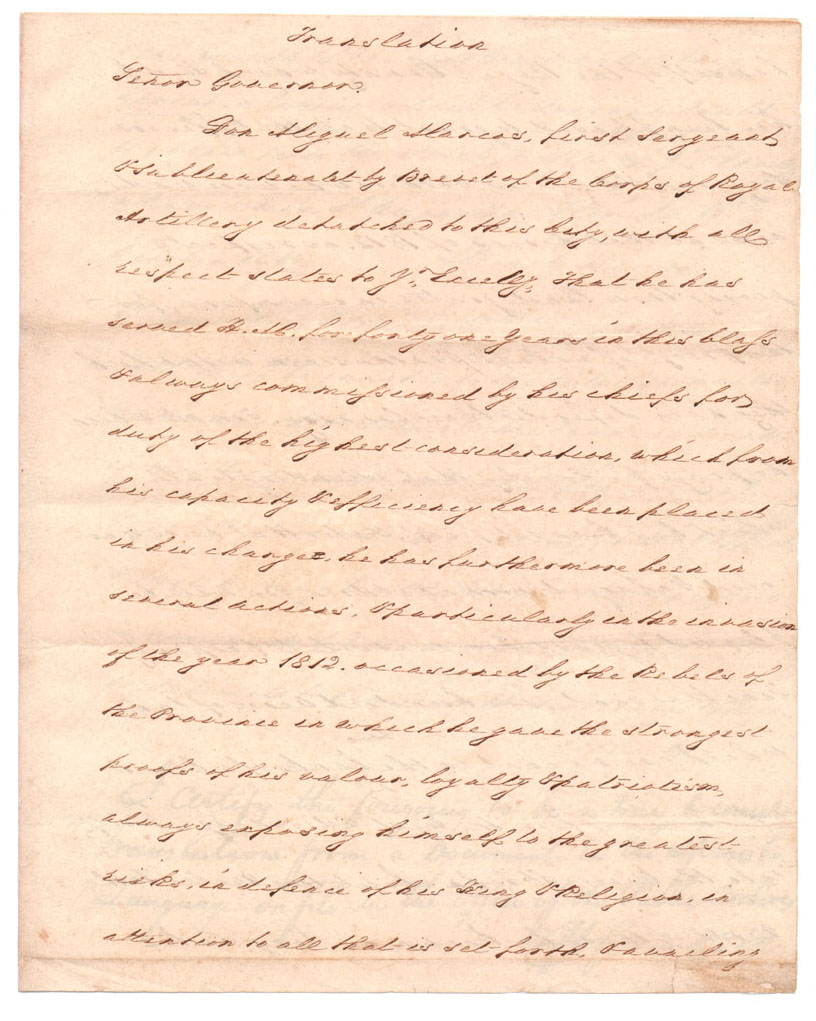 Translation
Señor Governor.
Don Miguel Marcos, first Sergeant
& sublieutenant by Brevet of the Corps of Royal
Artillery detatched to this City, with all
respect states to Yr. Excelly. that he has
served H. M. for forty one Years in this Class
& always commissioned by his chiefs for
duty of the highest consideration, which from
his capacity & efficiency have been placed
in his charge, he has furthermore been in
several actions, & particularly in the invasion
of the year 1812. occasioned by the Rebels of
the Province in which he gave the strongest
proofs of his valour, loyalty & patriotism,
always exposing himself to the greatest
risks, in defence of his King & Religion, in
attention to all that is set forth, & availing